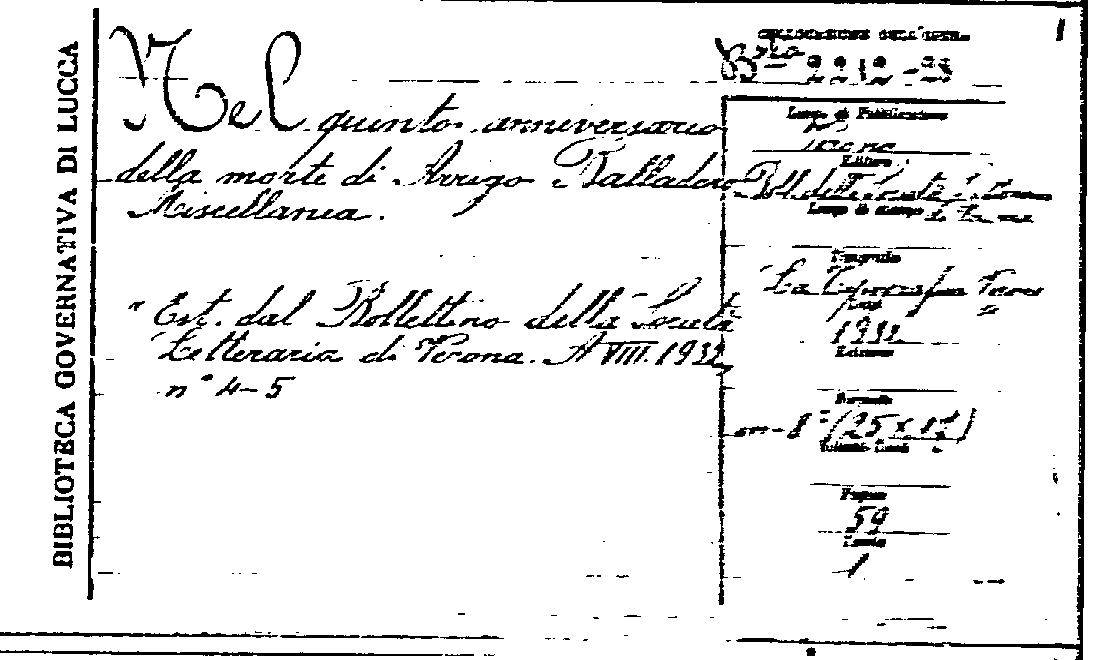 BIBLIOTECA GOVERNATIVA DI LUCCA
1
COLLOCAZIONE DELL'OPERA
Bta
Nel quinto anniversario
della morte di Arrigo Balladoro
Miscellanea.
" Est. dal Bollettino della Società
Letteraria di Verona. A VIII. 1932,
n° 4-5
Luogo di Pubblicazione
Verona
Editore
Boll. della Società Letteraria
di Verona
Luogo di stampa
Tipografia
La Tipografica Veronese
Anni
1932
Edizione
Formato
in-8°
Pagine
59
Tavole
1